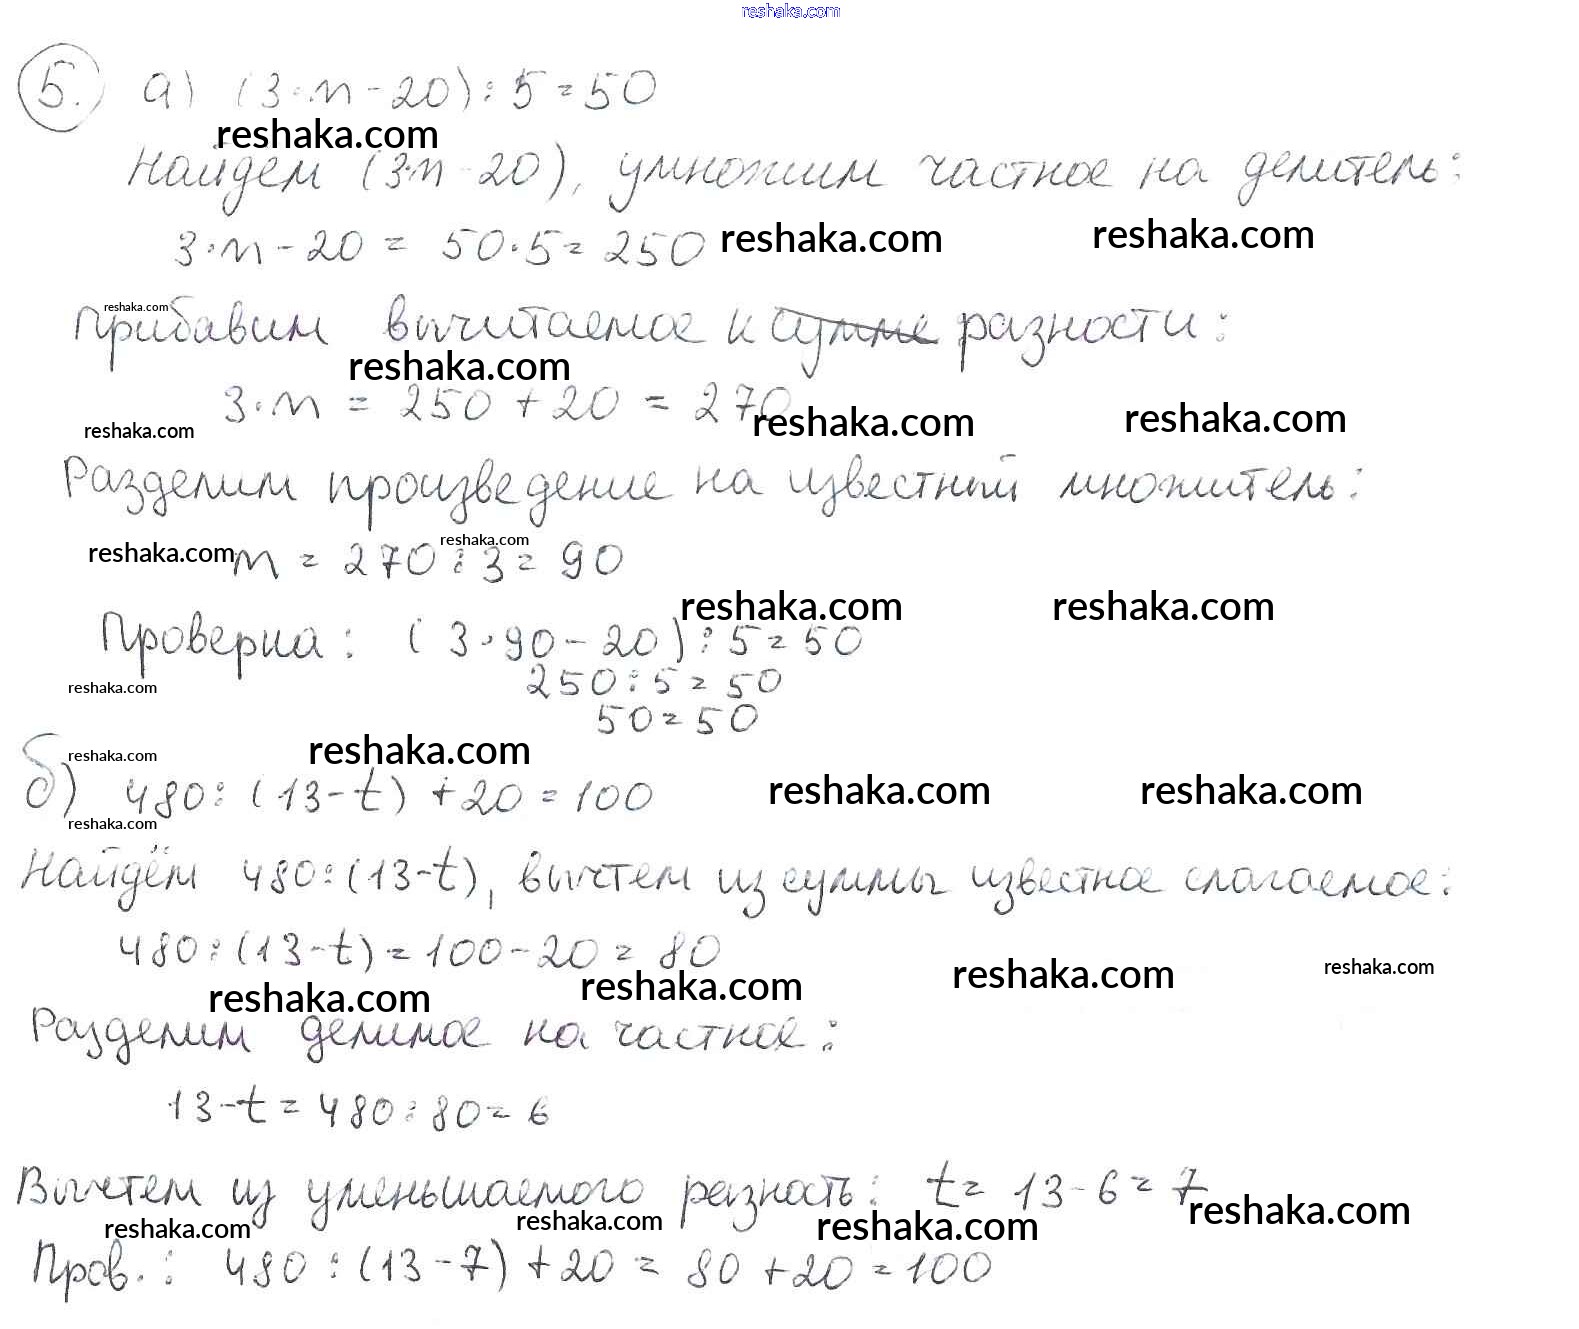 reshaka.com
5. а) (3·n-20):5=50
reshaka.com
Найдем (3·n-20), умножим частное на делитель:
3·n-20 = 50·5=250 reshaka.com reshaka.com
reshaka.com
Прибавим вычитаемое к сумме разности:
reshaka.com
3·n = 250+20 = 270
reshaka.com reshaka.com reshaka.com
Разделим произведение на известный множитель:
reshaka.com n = 270:3= 90 reshaka.com
reshaka.com reshaka.com
Проверка: (3·90-20):5=50
reshaka.com 250:5=50
50=50
reshaka.com reshaka.com
б) 480:(13-t)+20=100 reshaka.com reshaka.com
reshaka.com
Найдём 480:(13-t), вычтем из суммы известное слагаемое:
480:(13-t)=100-20=80
reshaka.com reshaka.com reshaka.com reshaka.com
Разделим делимое на частное:
13-t=480:80=6
Вычтем из уменьшаемого разность: t=13-6=7
reshaka.com reshaka.com reshaka.com reshaka.com
Пров.: 480:(13-7)+20=80+20=100